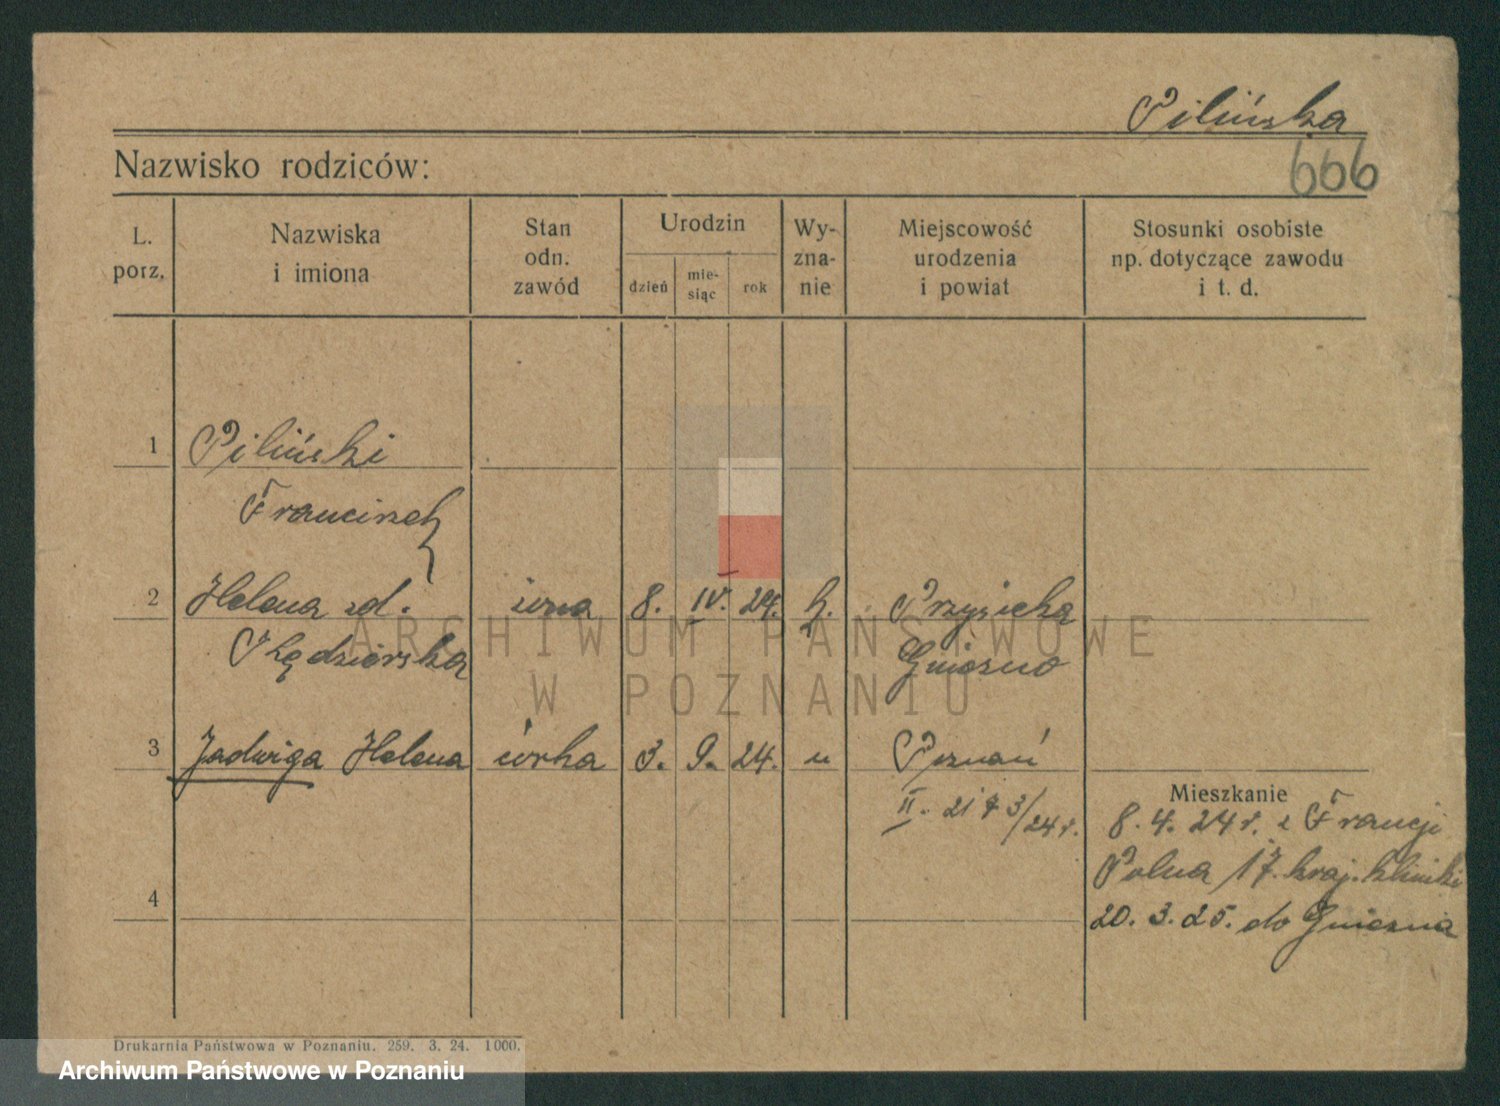 Pilińska
666
Nazwisko rodziców:
L. porz.
Nazwiska i imiona
Stan odn. zawód
Urodzin
dzień
mie-siąc
rok
Wy-zna-nie
Miejscowość urodzenia i powiat
Stosunki osobiste np. dotyczące zawodu i t. d.
1 Piliński
Franciszek
2 Helena zd. żona 8. IV. 24. k.
Kędzierska Gniezno
3 Jadwiga Helena córka 3. 9. 24. " Poznań
Mieszkanie
8. 4. 24 r. z Francji
Polna 17. kraj. kliniki
20. 3. 25. do Gniezna
4
Drukarnia Państwowa w Poznaniu. 259. 3. 24. 1000.
ARCHIWUM PAŃSTWOWE
W POZNANIU
Archiwum Państwowe w Poznaniu